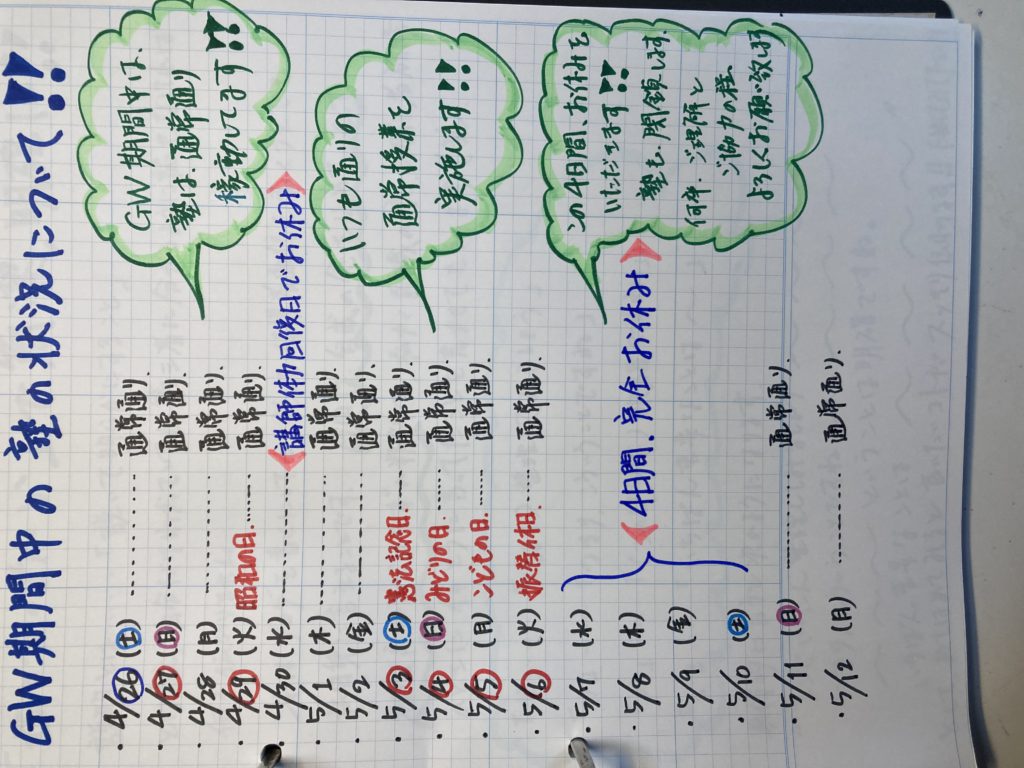 GW期間中の塾の状況について!!
・4/26(土)………通常通り.
・4/27(日)………通常通り.
・4/28(月)………通常通り.
・4/29(火)昭和の日……通常通り.
・4/30(水)………《講師体力回復日でお休み》
・5/1(木)………通常通り.
・5/2(金)………通常通り.
・5/3(土)憲法記念日……通常通り.
・5/4(日)みどりの日……通常通り.
・5/5(月)こどもの日……通常通り.
・5/6(火)振替休日……通常通り.
・5/7(水)
・5/8(木)
・5/9(金)
・5/10(土)
《4日間、完全お休み》
・5/11(日)………通常通り.
・5/12(月)………通常通り.
GW期間中は、
塾は、通常通り
稼動してます!!
いつも通りの
通常授業を
実施します!!
この4日間、お休みを
いただだきます!!
塾も、閉鎖します.
何卒、ご理解と
ご協力の程、
よろしくお願い致します